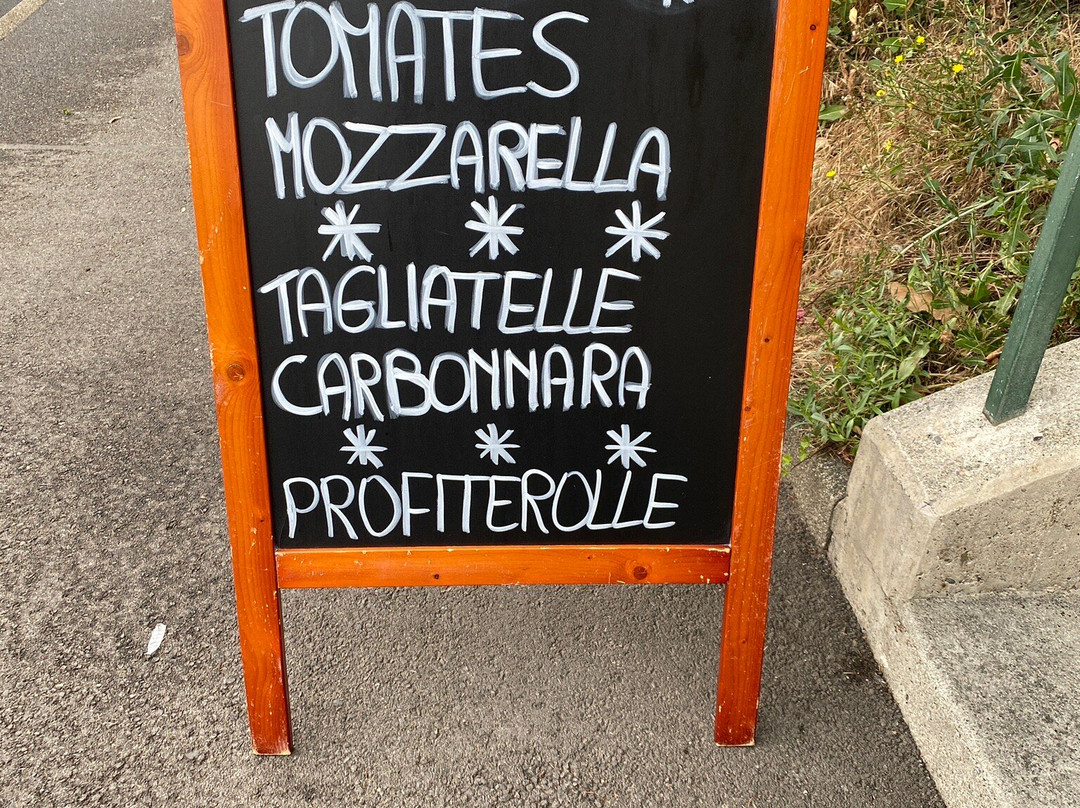 TOMATES
MOZZARELLA
* * *
TAGLIATELLE
CARBONNARA
* * *
PROFITEROLLE